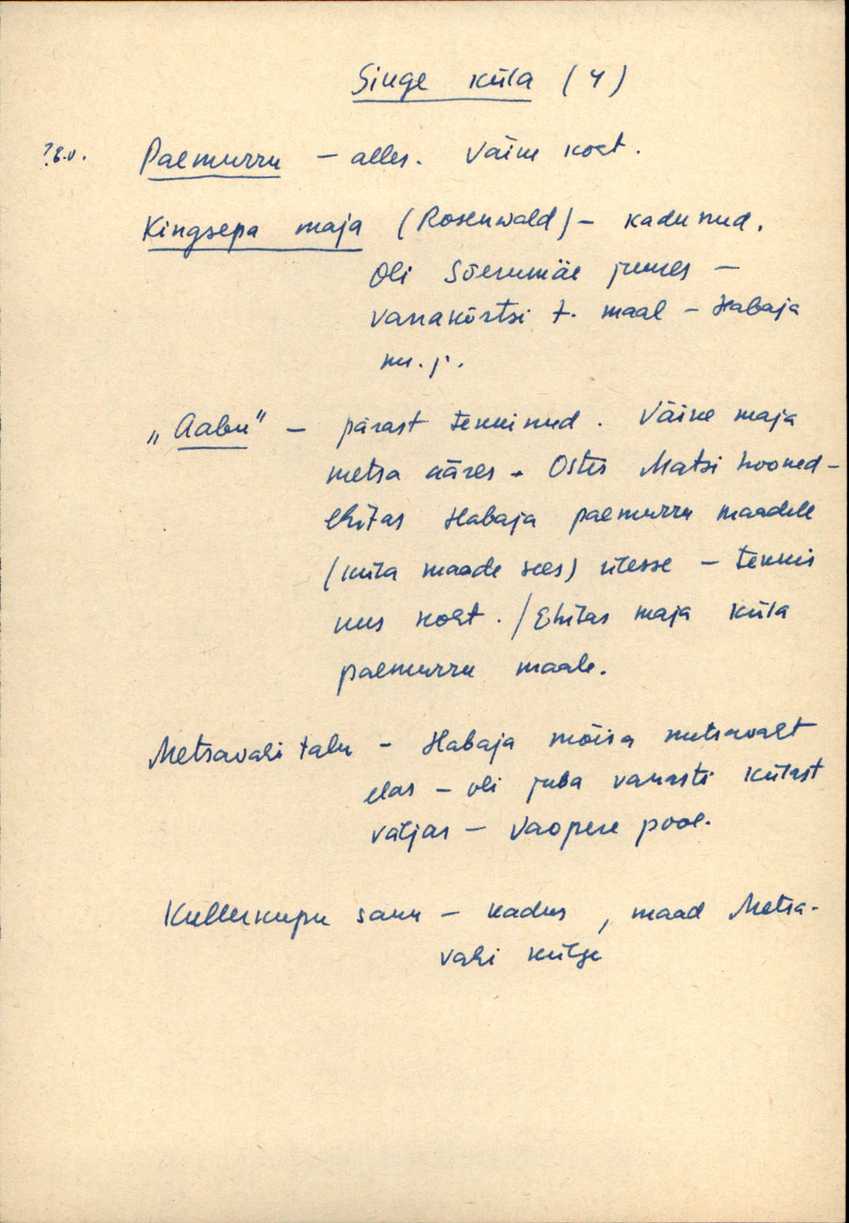 Singe küla (4)
?E.v. Paemurru – alles. Väike koht.
Kingsepa maja (Rosenwald) – kadunud.
Oli Sõerumäe juures –
vanakõrtsi t. maal – Habaja
m. j.
„Aabu" – pärast tekkinud. Väike maja
metsa ääres. Ostis Matsi hooned –
ehitas Habaja paemurru maadele
(küla maade sees) ülesse – tekkis
uus koht. / Ehitas maja küla
paemurru maale.
Metsavahi talu – Habaja mõisa metsavaht
elas – oli juba vanasti külast
väljas – Vaopere pool.
Kullerkupu saun – kadus, maad Metsa-
vahi külge